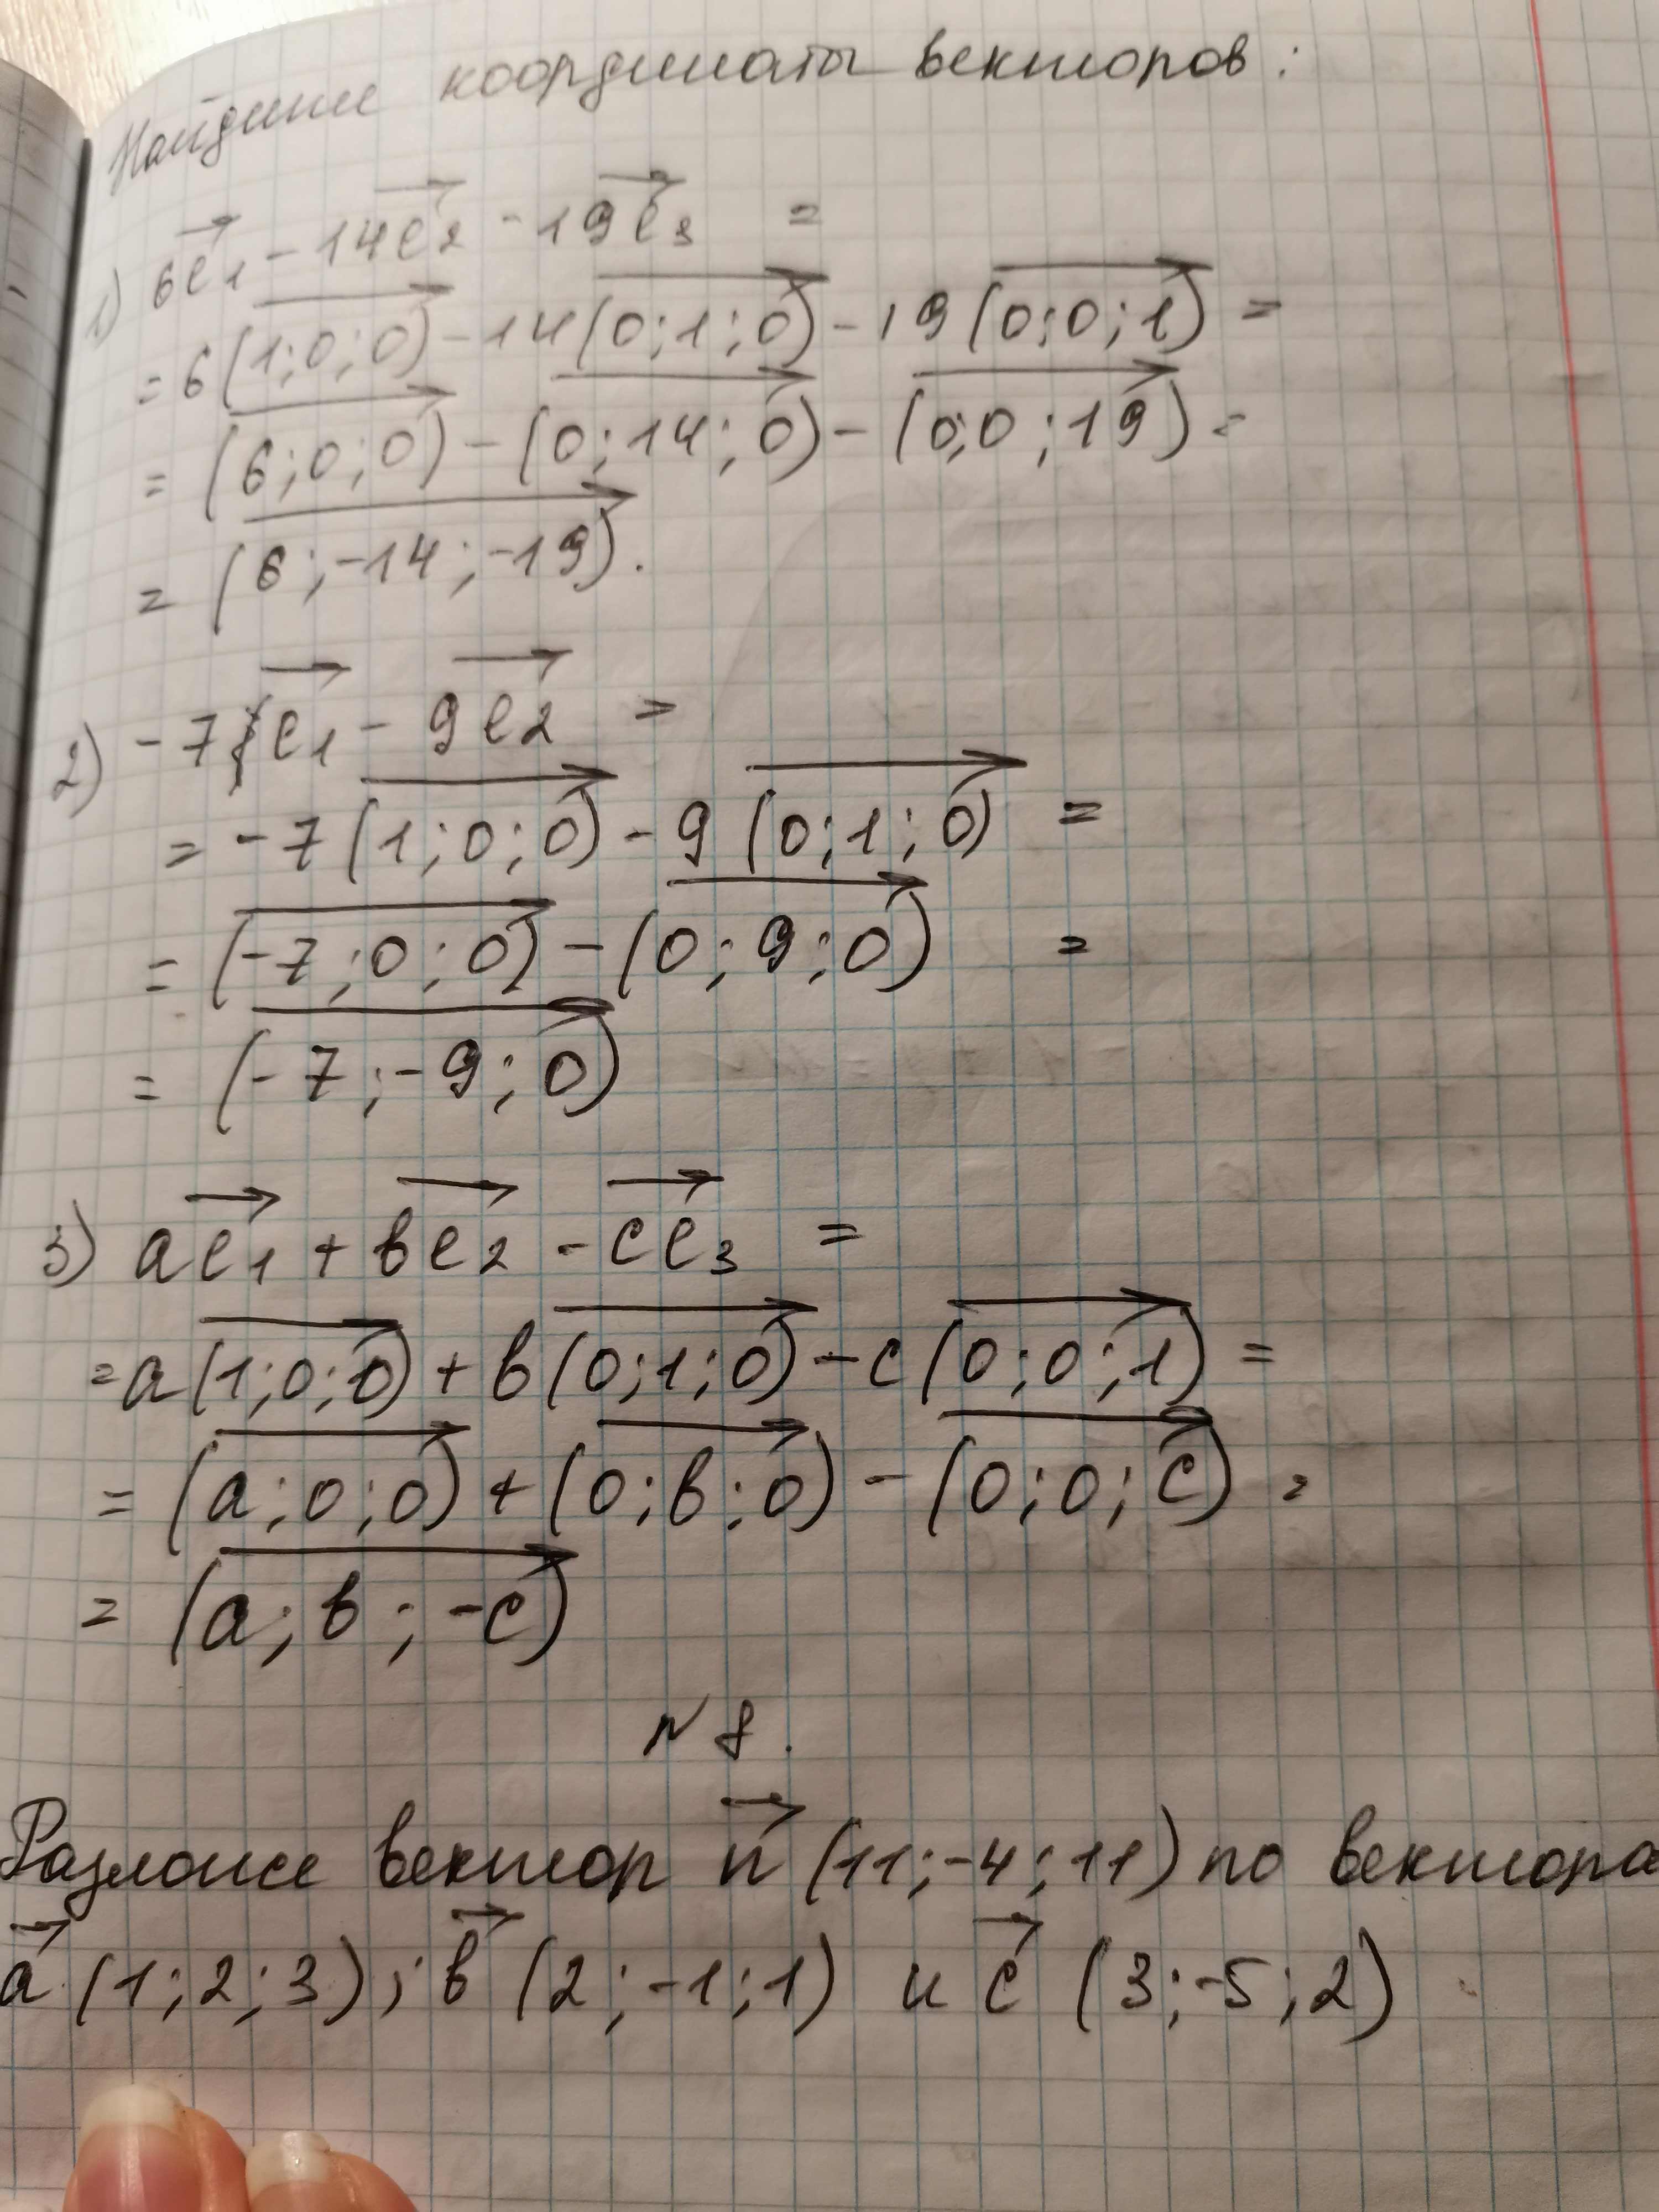 Найдите координаты векторов:
1) 6e₁ - 14e₂ - 19e₃ =
= 6(1;0;0) - 14(0;1;0) - 19(0;0;1) =
= (6;0;0) - (0;14;0) - (0;0;19) =
= (6;-14;-19).
2) -7e₁ - 9e₂ =
= -7(1;0;0) - 9(0;1;0) =
= (-7;0;0) - (0;9;0) =
= (-7;-9;0)
3) ae₁ + вe₂ - ce₃ =
= a(1;0;0) + в(0;1;0) - c(0;0;1) =
= (a;0;0) + (0;в;0) - (0;0;c) =
= (a;в;-c)
N 8.
вектор n (11;-4;11) по вектора
a (1;2;3); в (2;-1;1) и c (3;-5;2)